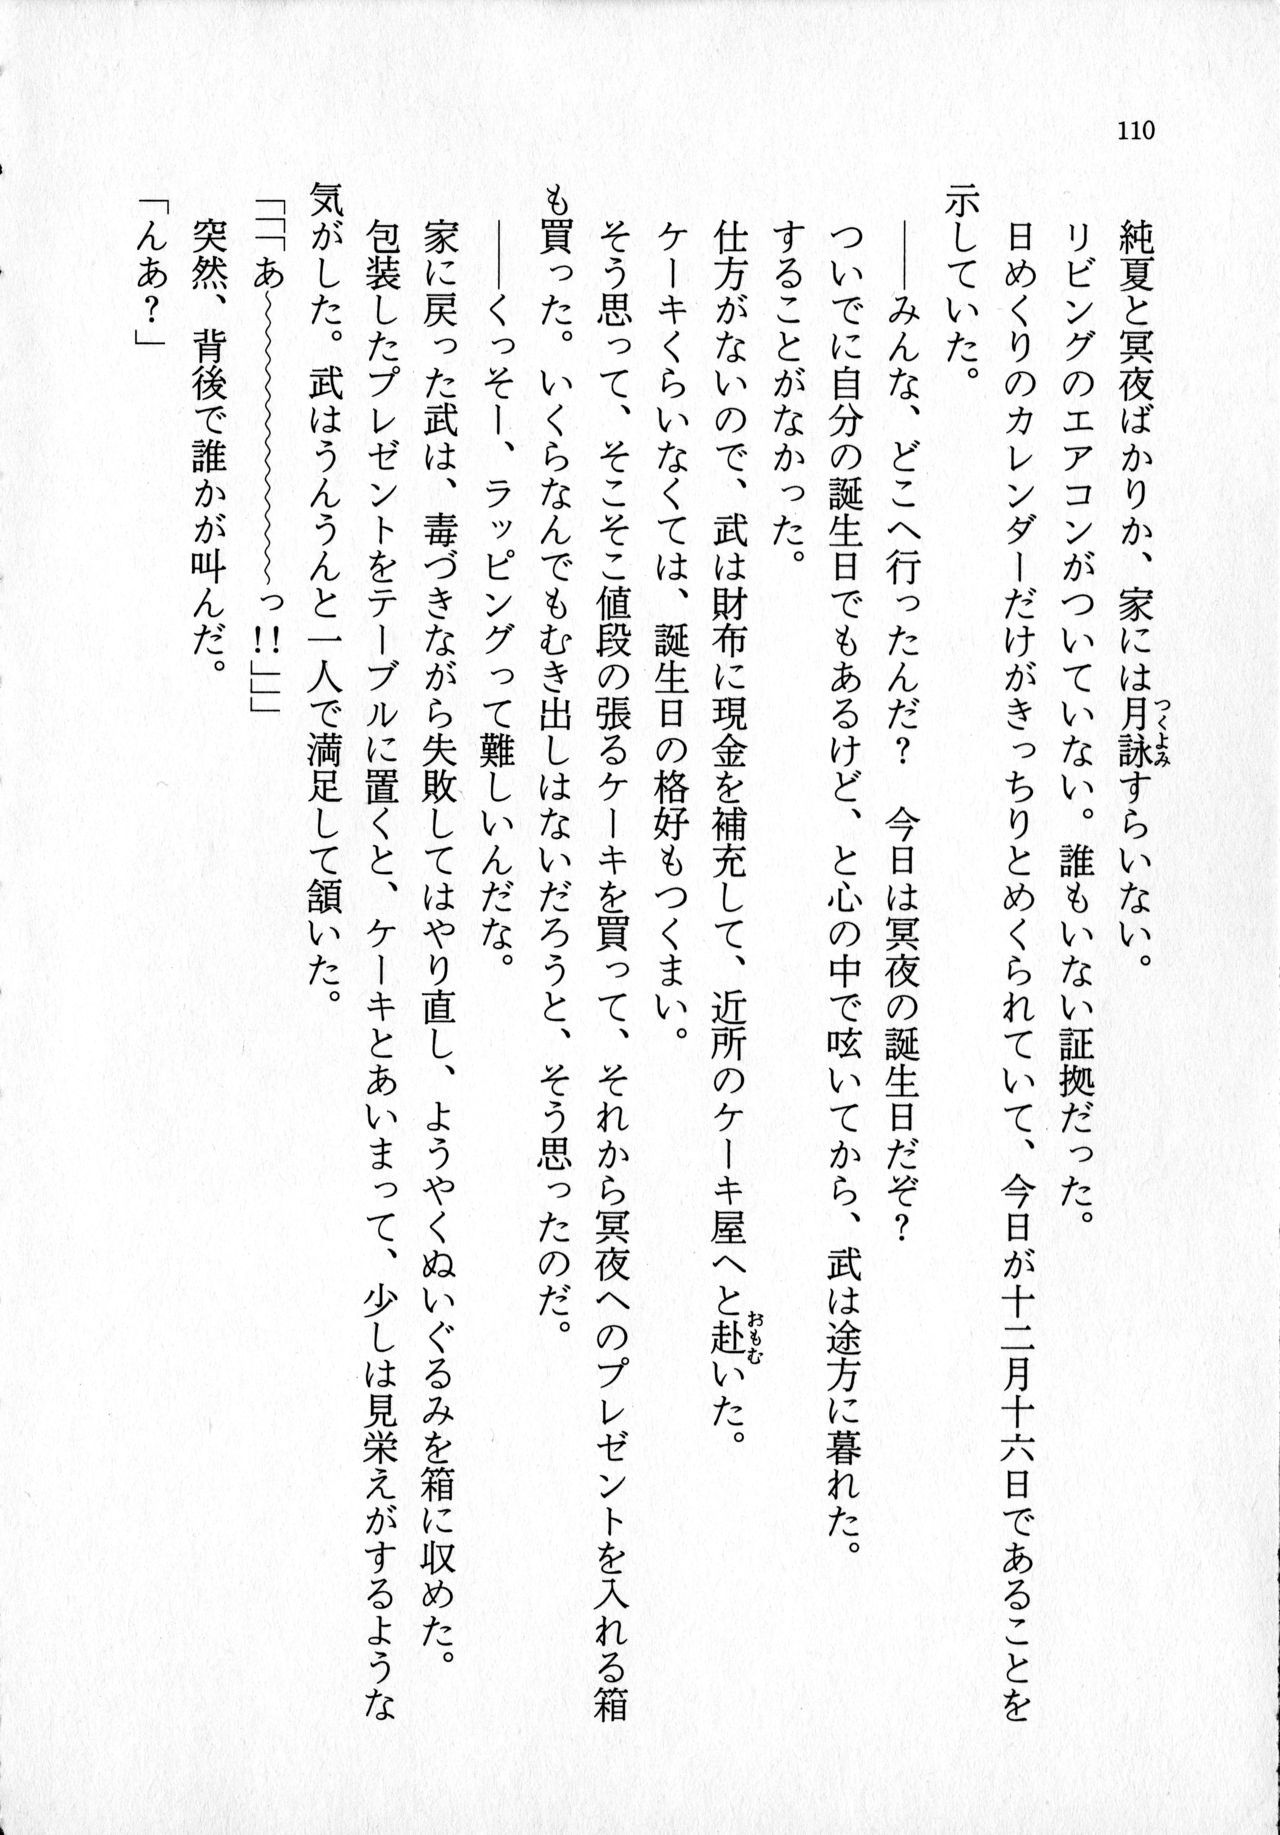 110
純夏と冥夜ばかりか、家には月詠すらいない。
つくよみ
リビングのエアコンがついていない。誰もいない証拠だった。
日めくりのカレンダーだけがきっちりとめくられていて、今日が十二月十六日であることを
示していた。
――みんな、どこへ行ったんだ？　今日は冥夜の誕生日だぞ？
ついでに自分の誕生日でもあるけど、と心の中で呟いてから、武は途方に暮れた。
することがなかった。
仕方がないので、武は財布に現金を補充して、近所のケーキ屋へと赴いた。
おもむ
ケーキくらいなくては、誕生日の格好もつくまい。
そう思って、そこそこ値段の張るケーキを買って、それから冥夜へのプレゼントを入れる箱
も買った。いくらなんでもむき出しはないだろうと、そう思ったのだ。
――くっそー、ラッピングって難しいんだな。
家に戻った武は、毒づきながら失敗してはやり直し、ようやくぬいぐるみを箱に収めた。
包装したプレゼントをテーブルに置くと、ケーキとあいまって、少しは見栄えがするような
気がした。武はうんうんと一人で満足して頷いた。
「「「あ～～～～～～～～っ!!」」」
突然、背後で誰かが叫んだ。
「んあ？」